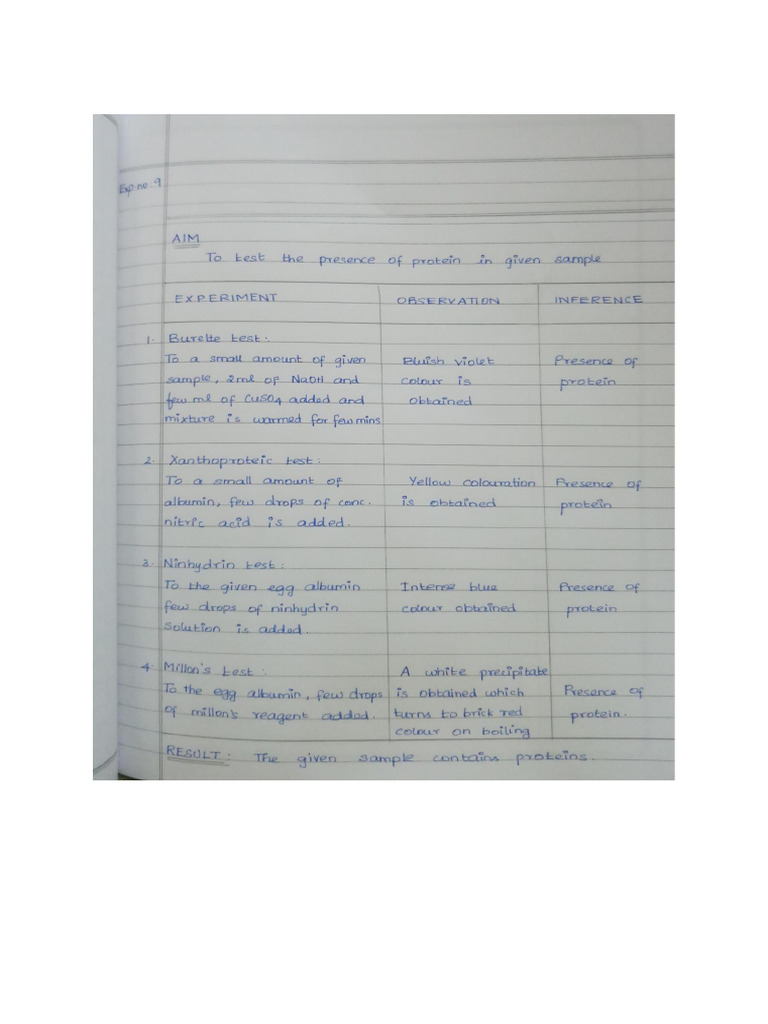 Exp.no.9
AIM
To test the presence of protein in given sample
EXPERIMENT OBSERVATION INFERENCE
1. Burette test:
To a small amount of given Bluish violet Presence of
sample, 2ml of NaOH and colour is protein
few ml of CuSO4 added and obtained
mixture is warmed for few mins
2. Xanthoproteic test:
To a small amount of Yellow colouration Presence of
albumin, few drops of conc. is obtained protein
nitric acid is added.
3. Ninhydrin test:
To the given egg albumin Intense blue Presence of
few drops of ninhydrin colour obtained protein
solution is added.
4. Millon's test: A white precipitate
To the egg albumin, few drops is obtained which Presence of
of millon's reagent added. turns to brick red protein.
colour on boiling
RESULT: The given sample contains proteins.